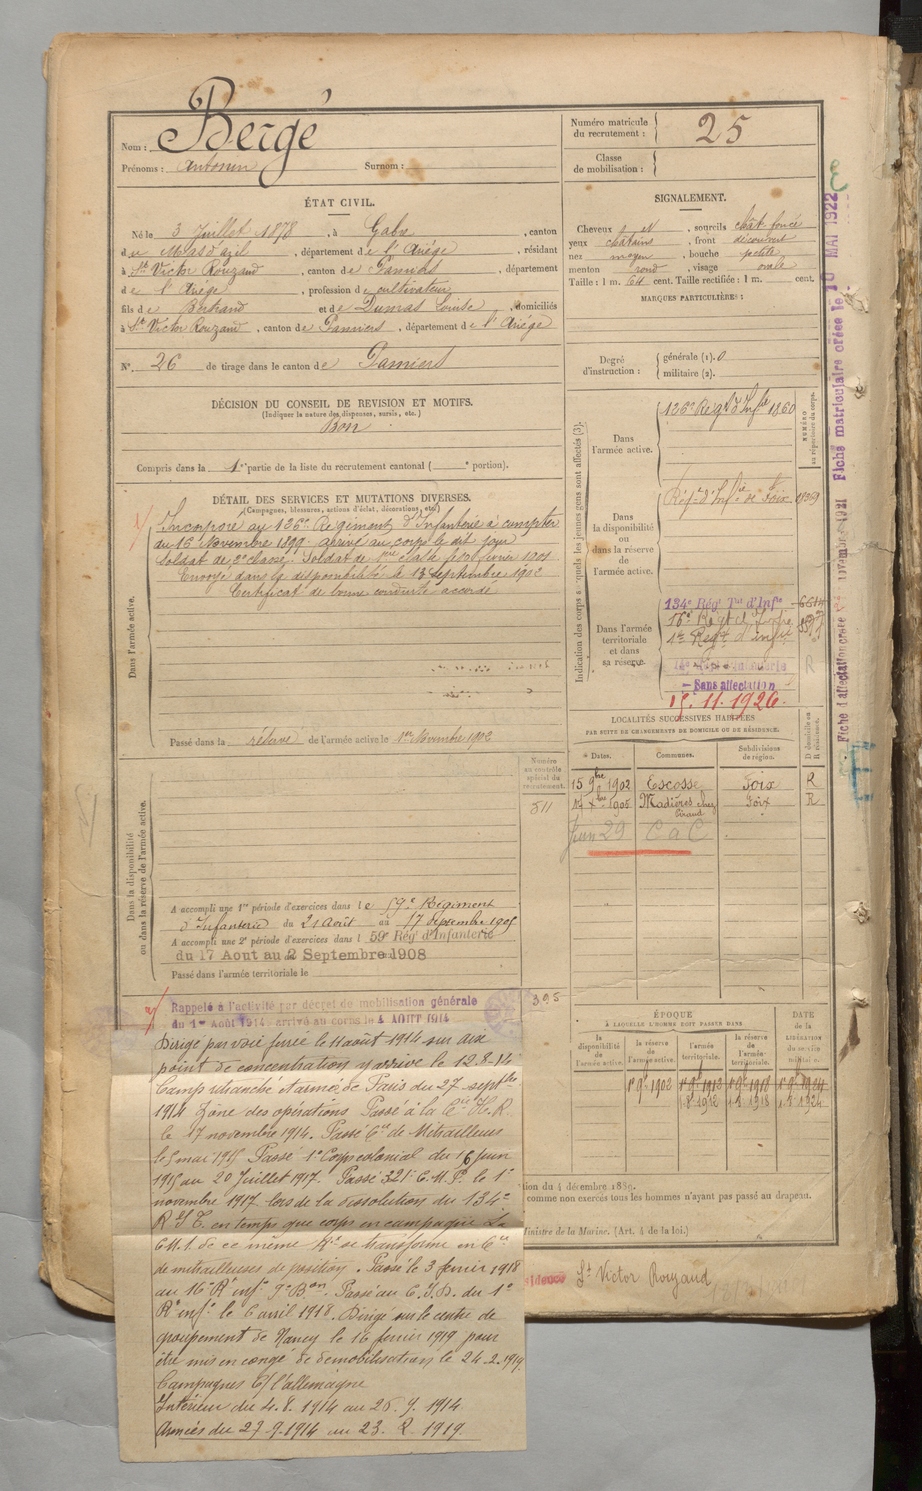 Nom : Bergé
Prénoms : Antonin Surnom :
Numéro matricule du recrutement : 25
Classe de mobilisation :
ÉTAT CIVIL.
Né le 3 Juillet 1878, à Gabre, canton
du Mas d'azil, département de l'Ariége, résidant
à St Victor Rouzaud, canton de Pamiers, département
de l'Ariége, profession de cultivateur
fils de Bertrand et de Dumas Louise, domiciliés
à St Victor Rouzaud, canton de Pamiers, département de l'Ariége
N° 26 de tirage dans le canton de Pamiers
SIGNALEMENT.
Cheveux et, sourcils chât foncé
yeux châtains, front découvert
nez moyen, bouche petite
menton rond, visage ovale
Taille : 1 m. 64 cent. Taille rectifiée : 1 m. cent.
MARQUES PARTICULIÈRES :
Degré d'instruction : générale (1). 0
militaire (2).
DÉCISION DU CONSEIL DE REVISION ET MOTIFS.
(Indiquer la nature des dispenses, sursis, etc.)
Bon
Compris dans la 1re partie de la liste du recrutement cantonal ( e portion).
DÉTAIL DES SERVICES ET MUTATIONS DIVERSES.
(Campagnes, blessures, actions d'éclat, décorations, etc.)
Dans l'armée active.
Incorporé au 126e Régiment d'Infanterie à compter
du 16 Novembre 1899. arrivé au corps le dit jour
Soldat de 2e classe. Soldat de 1ère classe le février 1901
Envoyé dans la disponibilité le 13 septembre 1902
Certificat de bonne conduite accordé
Passé dans la réserve de l'armée active le 1er Novembre 1902
Indication des corps auxquels les jeunes gens sont affectés (3).
NUMÉRO au répertoire du corps.
Dans l'armée active.
126e Régt d'Infie 1860
Dans la disponibilité ou dans la réserve de l'armée active.
Régt d'Infie de Foix
Dans l'armée territoriale et dans sa réserve.
134e Rég Tal d'Infie
16e Régt d'Infie
1er Régt d'infie
Sans affectation
15.11.1926.
R
LOCALITÉS SUCCESSIVES HABITÉES
PAR SUITE DE CHANGEMENTS DE DOMICILE OU DE RÉSIDENCE.
Dates. Communes. Subdivisions de région. D domicile ou R résidence.
15 9bre 1902 Escosse Foix R
Xbre 1905 Madières chez Giraud Foix R
Juin 29 CaC
Dans la disponibilité ou dans la réserve de l'armée active.
Numéro au contrôle spécial du recrutement.
511
A accompli une 1re période d'exercices dans le 59e Régiment
d'Infanterie du 21 Août au 17 septembre 1905
A accompli une 2e période d'exercices dans l 59e Rég' d'Infanterie
du 17 Aout au 2 Septembre 1908
Passé dans l'armée territoriale le
395
Rappelé à l'activité par décret de mobilisation générale
du 1er Août 1914. arrivé au corps le 4 AOUT 1914
Dirigé par voie ferrée le 11 août 1914 sur dix
point de concentration y arrive le 12.8.14
Camp retranché et armée de Paris du 27 septbre
1914 Zône des opérations Passé à la Cie H.R
le 17 novembre 1914. Passé Cie de Mitrailleuses
le 5 mai 1915 Passé 1er Corps colonial du 16 juin
1915 au 20 Juillet 1917. Passé 321e C.M.P. le 1er
novembre 1917 lors de la dissolution du 134e
R.I.T. en temps que corps en campagne La
C.M.1. de ce même Rt se transforme en Cie
de mitrailleuses de position. Passé le 3 fevrier 1918
au 16e Rt infie Bon. Passé au C.I.D. du 1er
Rt infie le 6 avril 1918. Dirigé sur le centre de
groupement de Nancy le 16 fevrier 1919 pour
être mis en congé de démobilisation le 24-2-1919
Campagnes C/ l'allemagne
Intérieur du 4.8.1914 au 26.9.1914
Armées du 27-9-1914 au 23.2.1919
ÉPOQUE
À LAQUELLE L'HOMME DOIT PASSER DANS
la disponibilité de l'armée active. la réserve de l'armée active. l'armée territoriale. la réserve de l'armée territoriale.
DATE de la LIBÉRATION du service militaire.
1er 9bre 1902 1er 9bre 1912 1er 9bre 1918 1er 9bre 1924
1.2.1912 1.2.1918 1.2.1924
tion du 4 décembre 1889.
comme non exercés tous les hommes n'ayant pas passé au drapeau.
Ministre de la Marine. (Art. 4 de la loi.)
sidence St Victor Rouzaud
Fiche d'affectation créée le novembre 1921
Fiche matriculaire créée le 10 MAI 1922